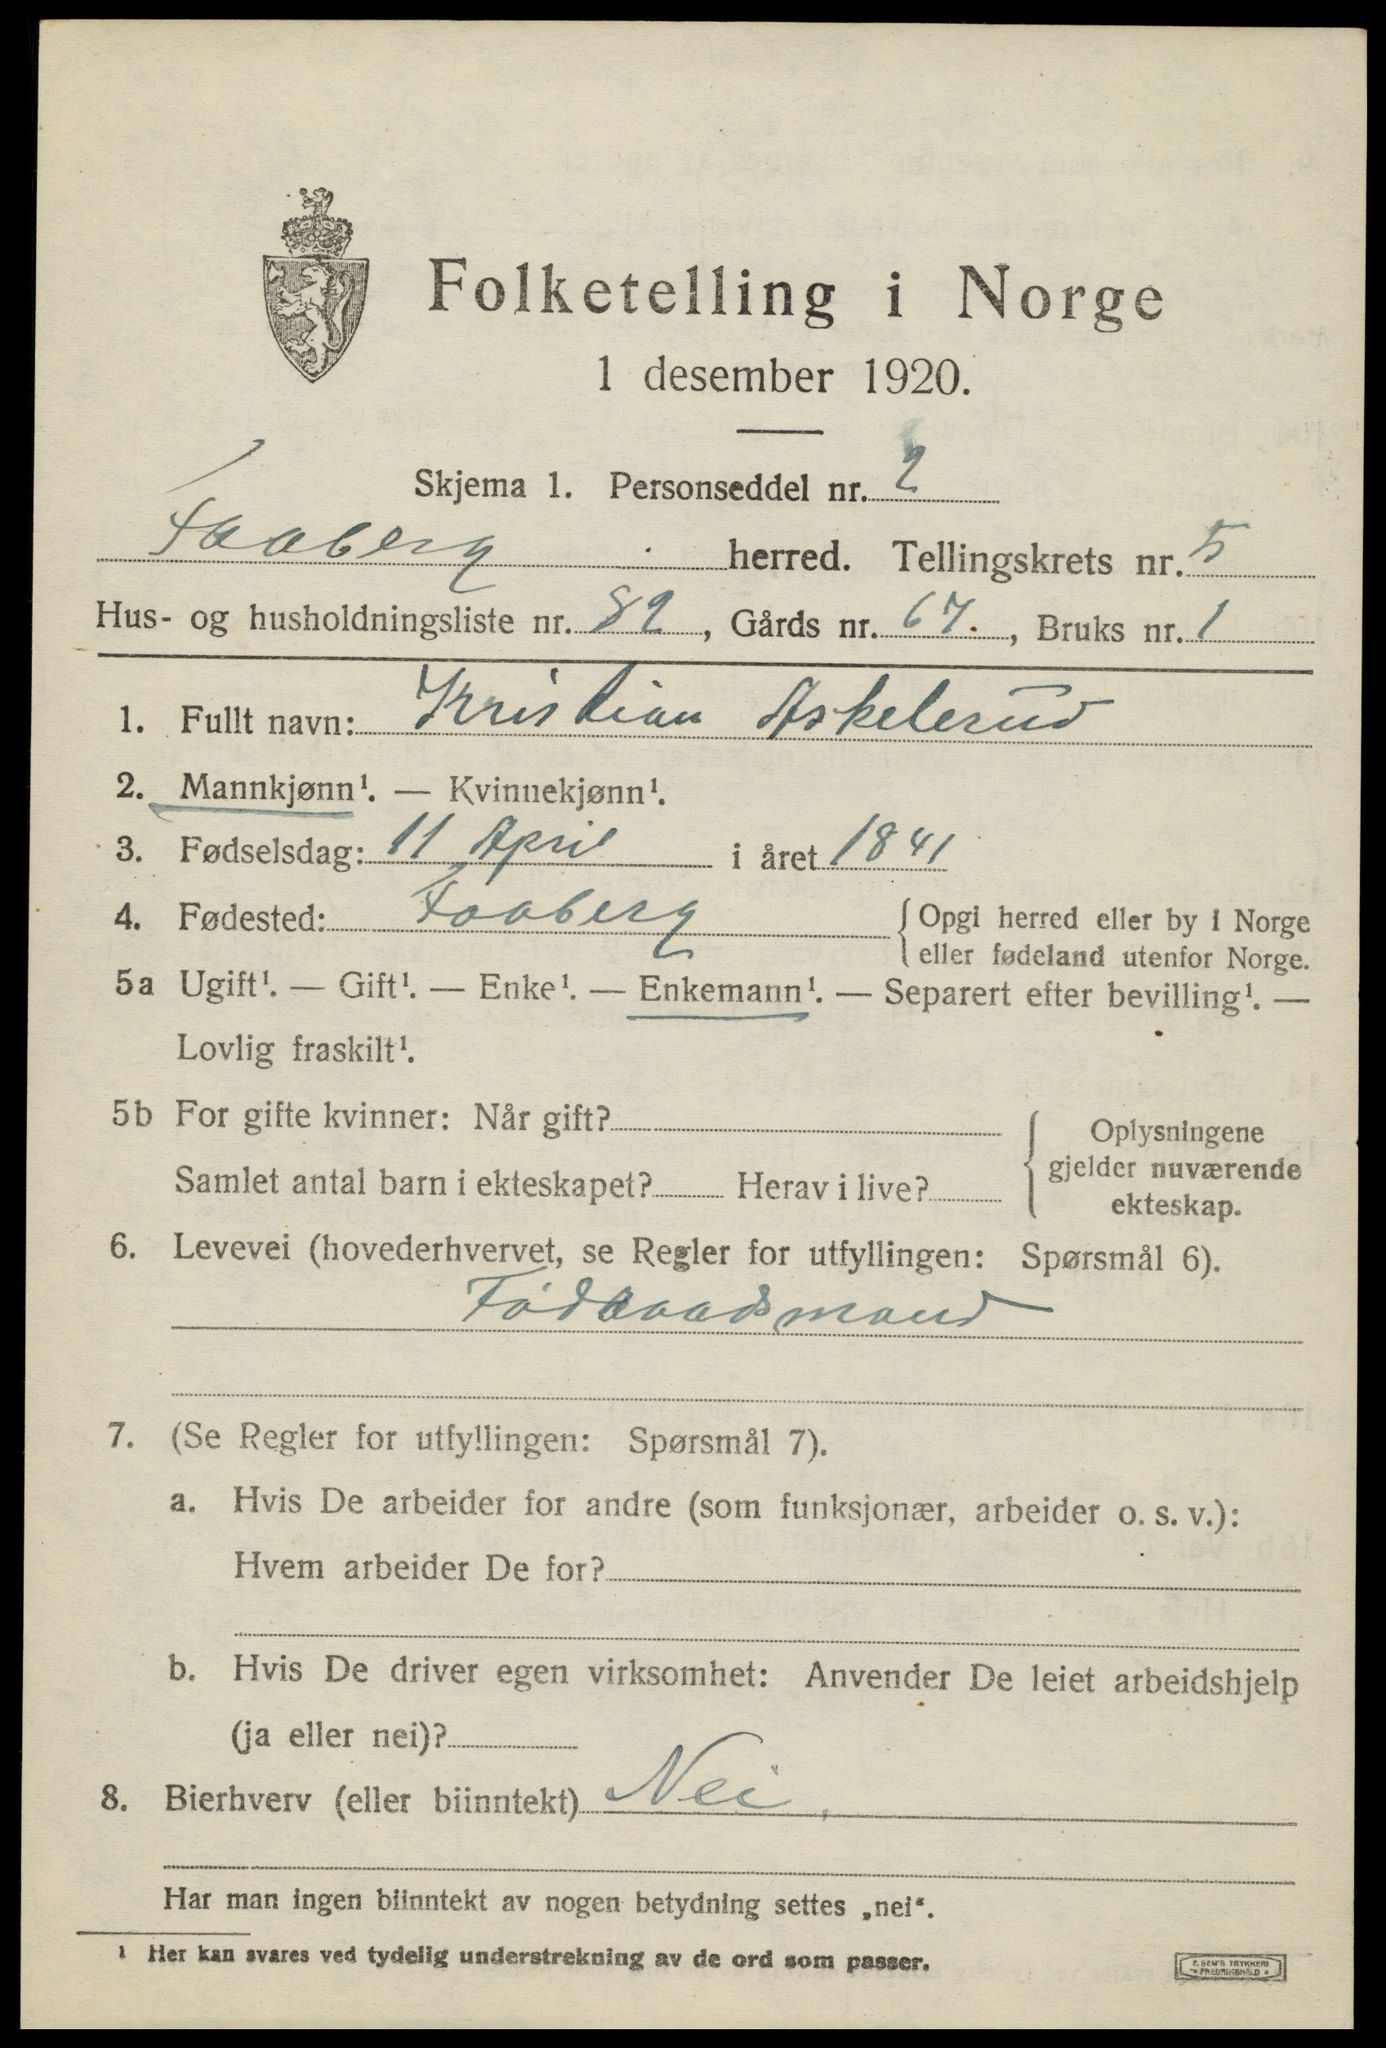 Folketelling i Norge
1 desember 1920.
Skjema 1. Personseddel nr. 2
Faaberg herred. Tellingskrets nr. 5
Hus- og husholdningsliste nr. 82, Gårds nr. 67., Bruks nr. 1
1. Fullt navn: Kristian Askelerud
2. Mannkjønn¹. — Kvinnekjønn¹.
3. Fødselsdag: 11 April i året 1841
4. Fødested: Faaberg { Opgi herred eller by i Norge
eller fødeland utenfor Norge.
5a Ugift¹. — Gift¹. — Enke¹. — Enkemann¹. — Separert efter bevilling¹. —
Lovlig fraskilt¹.
5b For gifte kvinner: Når gift?
Samlet antal barn i ekteskapet? Herav i live?
{ Oplysningene
gjelder nuværende
ekteskap.
6. Levevei (hovederhvervet, se Regler for utfyllingen: Spørsmål 6).
Födraadsmand
7. (Se Regler for utfyllingen: Spørsmål 7).
a. Hvis De arbeider for andre (som funksjonær, arbeider o. s. v.):
Hvem arbeider De for?
b. Hvis De driver egen virksomhet: Anvender De leiet arbeidshjelp
(ja eller nei)?
8. Bierhverv (eller biinntekt) Nei,
Har man ingen biinntekt av nogen betydning settes „nei“.
¹ Her kan svares ved tydelig understrekning av de ord som passer.
E. SEM'S TRYKKERI
FREDRIKSHALD